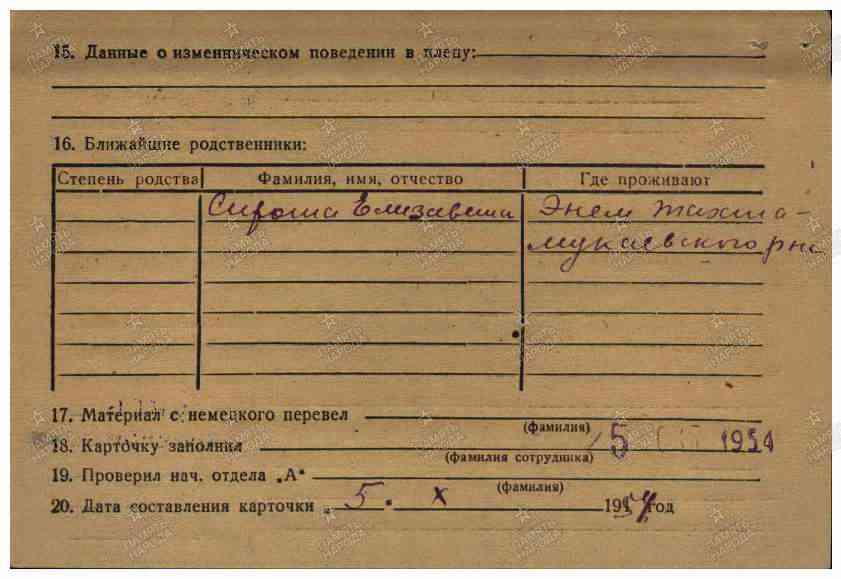 15. Данные о изменническом поведении в плену:
16. Ближайшие родственники:
Степень родства Фамилия, имя, отчество Где проживают
Сирота Елизавета Энем Тахта-
мукаевского рна
17. Материал с немецкого перевел
(фамилия)
18. Карточку заполнил 5 1954
(фамилия сотрудника)
19. Проверил нач. отдела „А“
(фамилия)
20. Дата составления карточки „ 5 " X 1954 год
ПАМЯТЬ НАРОДА